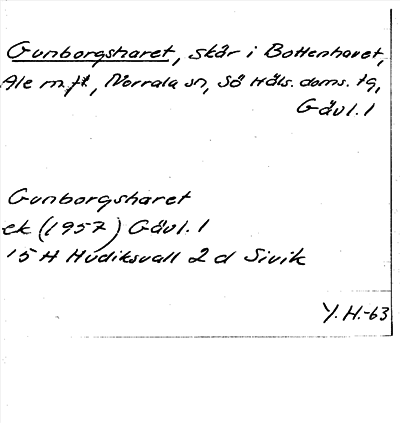 Gunborgsharet, skär i Bottenhavet,
Ale m.fl., Norrala sn, Sö Häls. doms. tg,
Gävl. l
Gunborgsharet
ek (1957) Gävl. l
15 H Hudiksvall 2 d Sivik
Y. H.-63